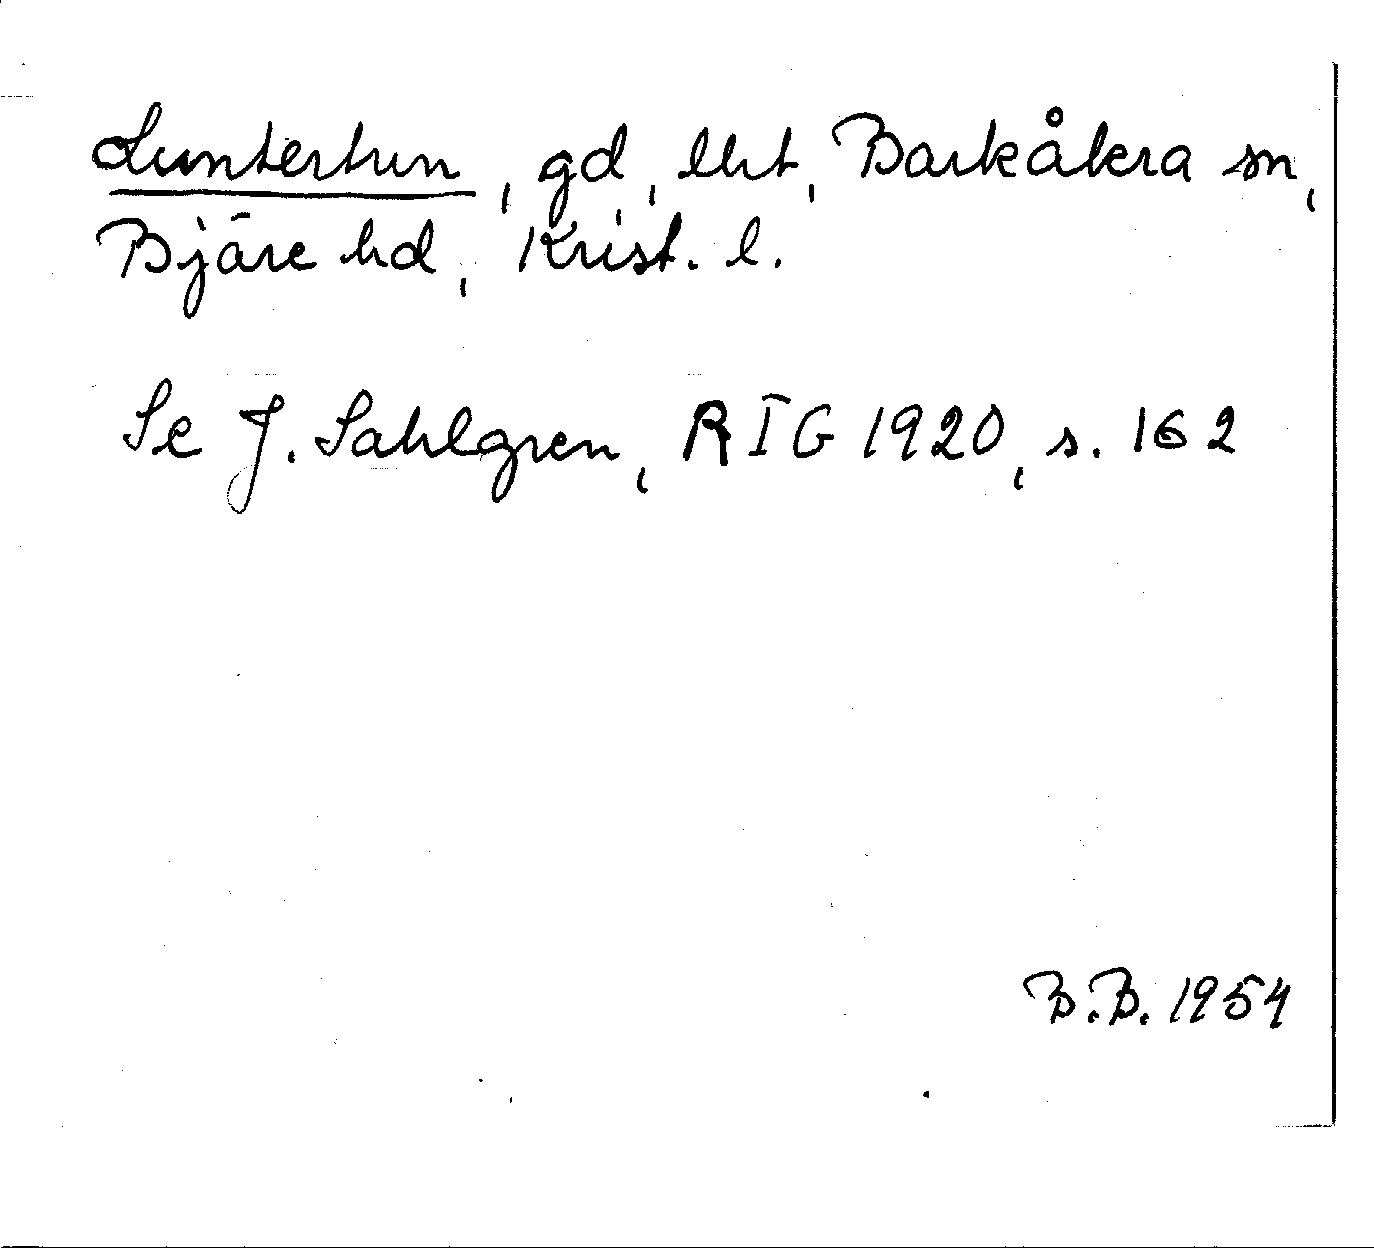 Luntertun, gd, lht, Barkåkra sn,
Bjäre hd, Krist. l.
Se J. Sahlgren, RIG 1920, s. 162
B.B. 1954